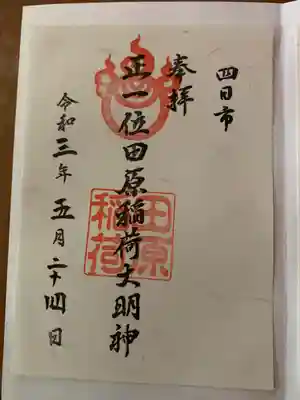 四日市
奉拝
正一位田原稲荷大明神
田原稲荷
令和三年五月二十四日